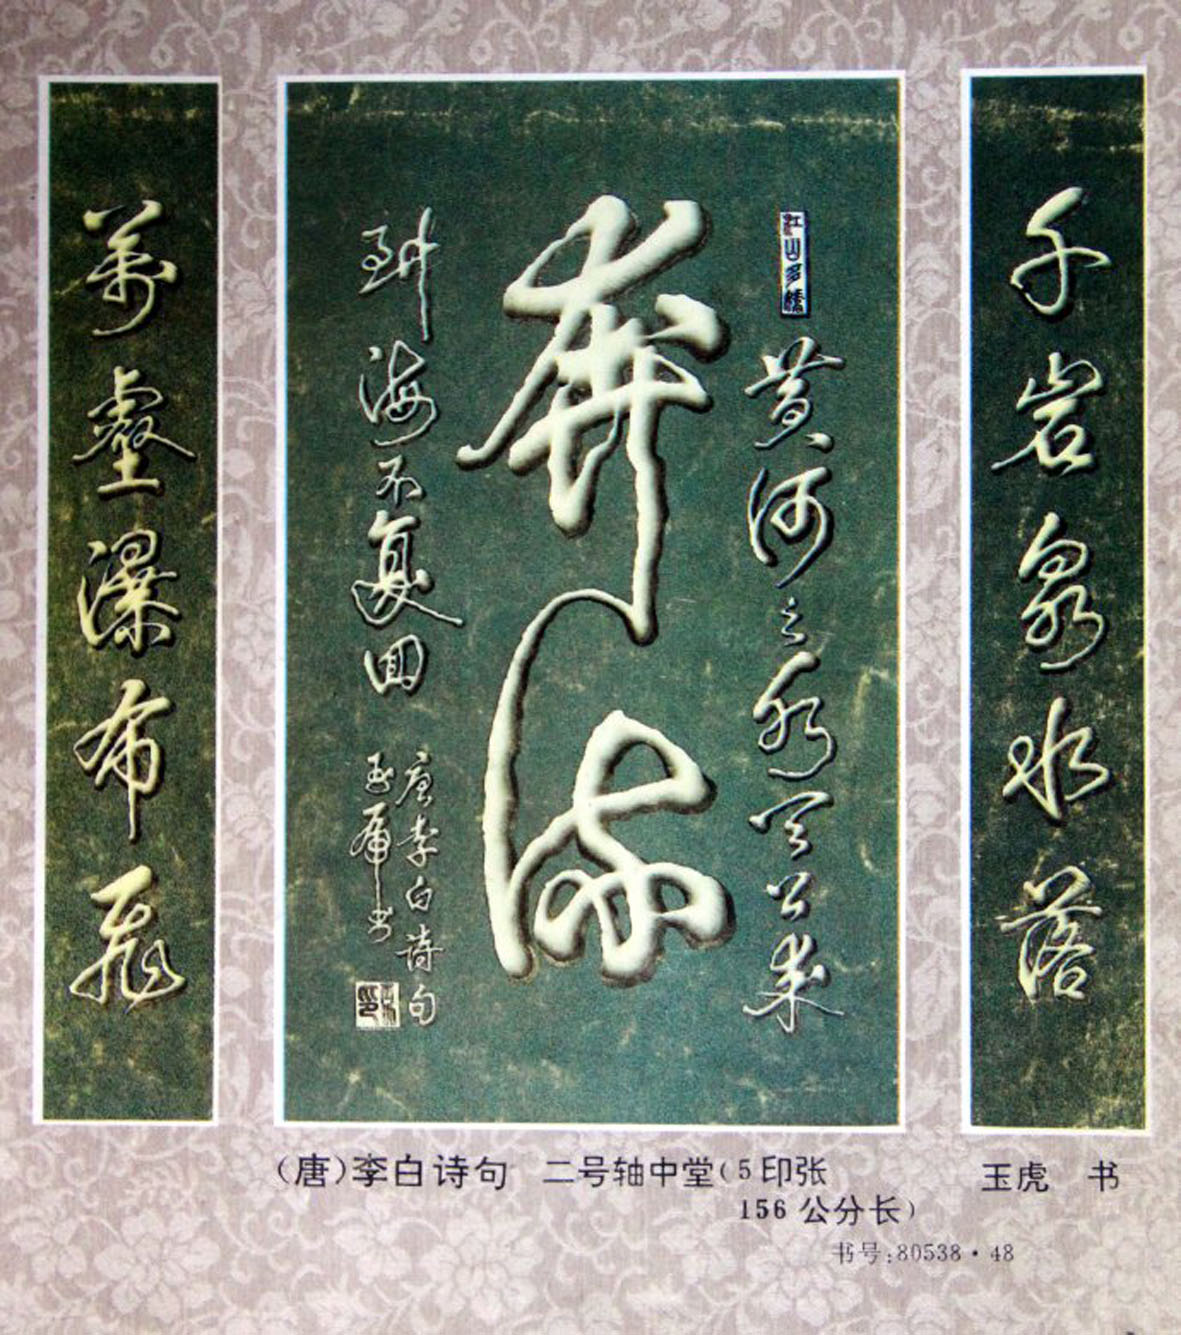 千岩泉水落
江山多嬌
黄河之水天上来
奔流
到海不復回
唐李白詩句
玉虎书
萬壑瀑布飛
(唐)李白诗句 二号轴中堂(5印张
156公分长)
玉虎 书
书号:80538·48